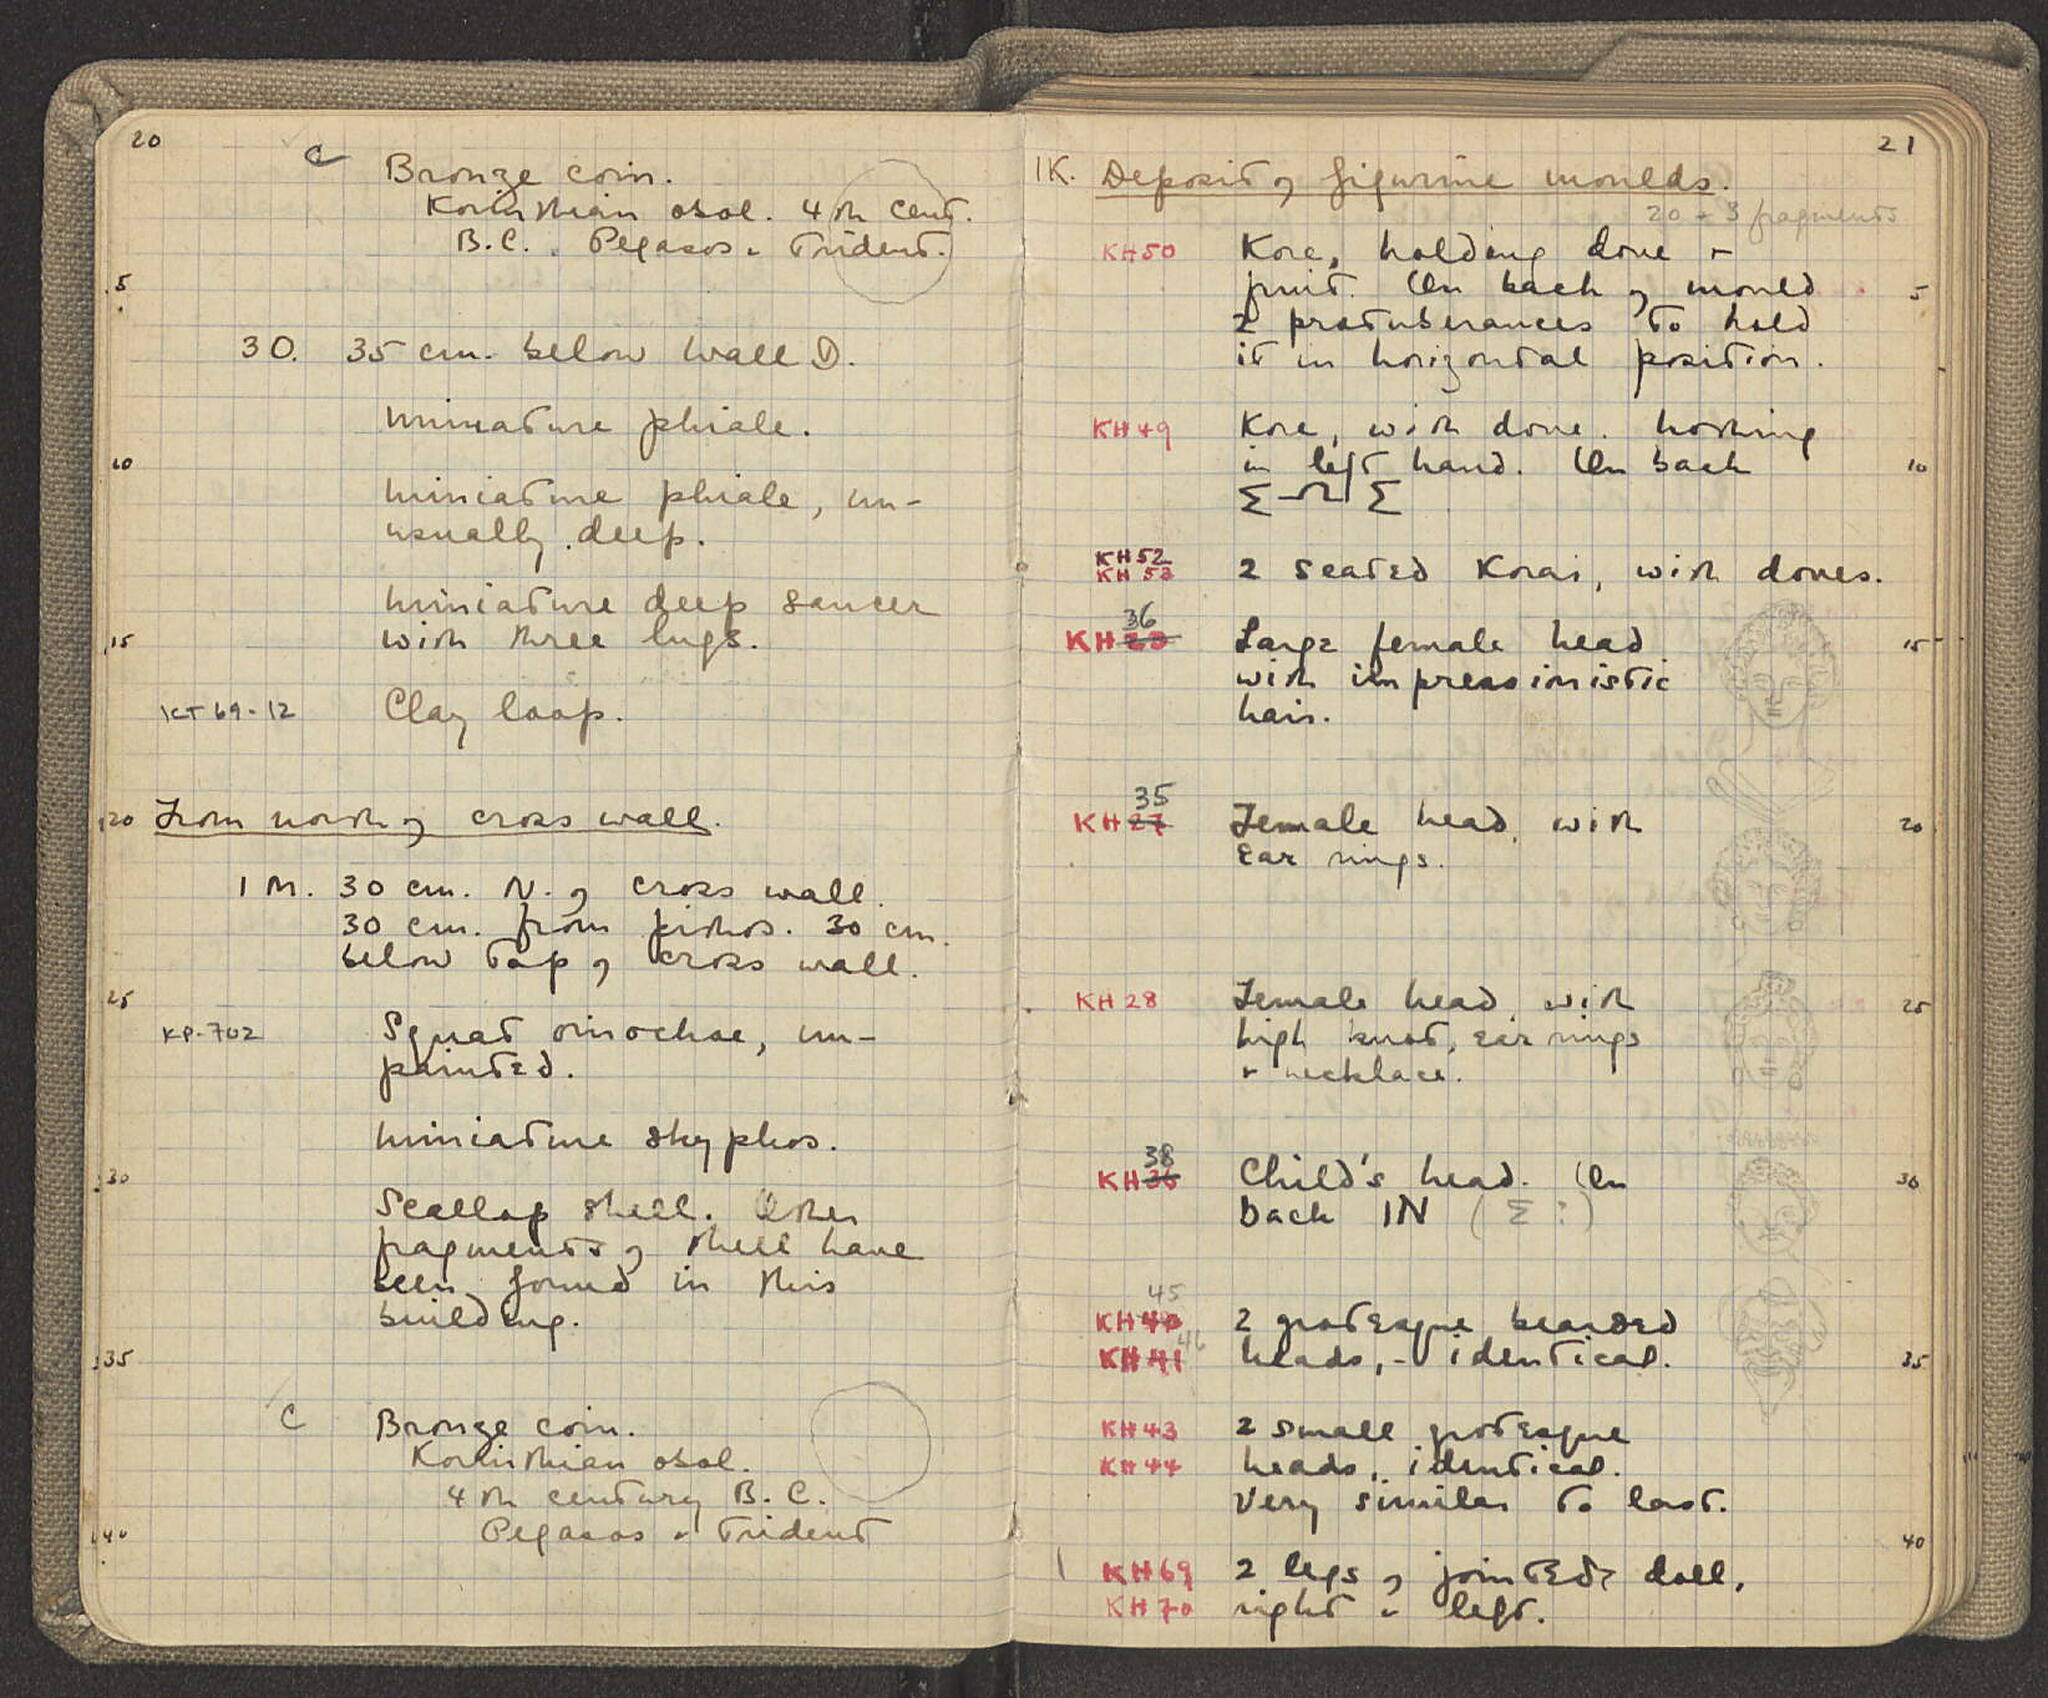 20
C Bronze coin.
Korinthian obol. 4th cent.
B.C. Pegasos - Trident.
5
30. 35 cm. below Wall D.
Miniature phiale.
10
Miniature phiale, un-
usually deep.
Miniature deep saucer
15 with three lugs.
KT 69-12 Clay loop.
20 From north of cross wall.
1 M. 30 cm. N. of cross wall.
30 cm. from pithos. 30 cm.
below top of cross wall.
25
KP-702 Squat oinochoe, un-
painted.
Miniature skyphos.
30
Scallop shell. Other
fragments of shell have
been found in this
building.
35
C Bronze coin.
Korinthian obol.
4th century B.C.
40 Pegasos - Trident
21
1K. Deposit of figurine moulds.
20 + 3 fragments
KH50 Kore, holding dove +
fruit. On back of mould 5
2 protuberances to hold
it in horizontal position.
KH49 Kore, with dove. Nothing
in left hand. On back 10
KH52
KH53 2 seated Korai, with doves.
36
KH Large female head 15
with impressionistic
hair.
35
KH27 Female head, with 20
ear rings.
KH28 Female head, with 25
high knot, ear rings
+ necklace.
38
KH36 Child's head. On 30
back IN (Σ?)
45
KH40 2 grotesque bearded
46
KH41 heads, - identical. 35
KH43 2 small grotesque
KH44 heads, identical.
Very similar to last.
40
KH69 2 legs of jointed doll,
KH70 right - left.